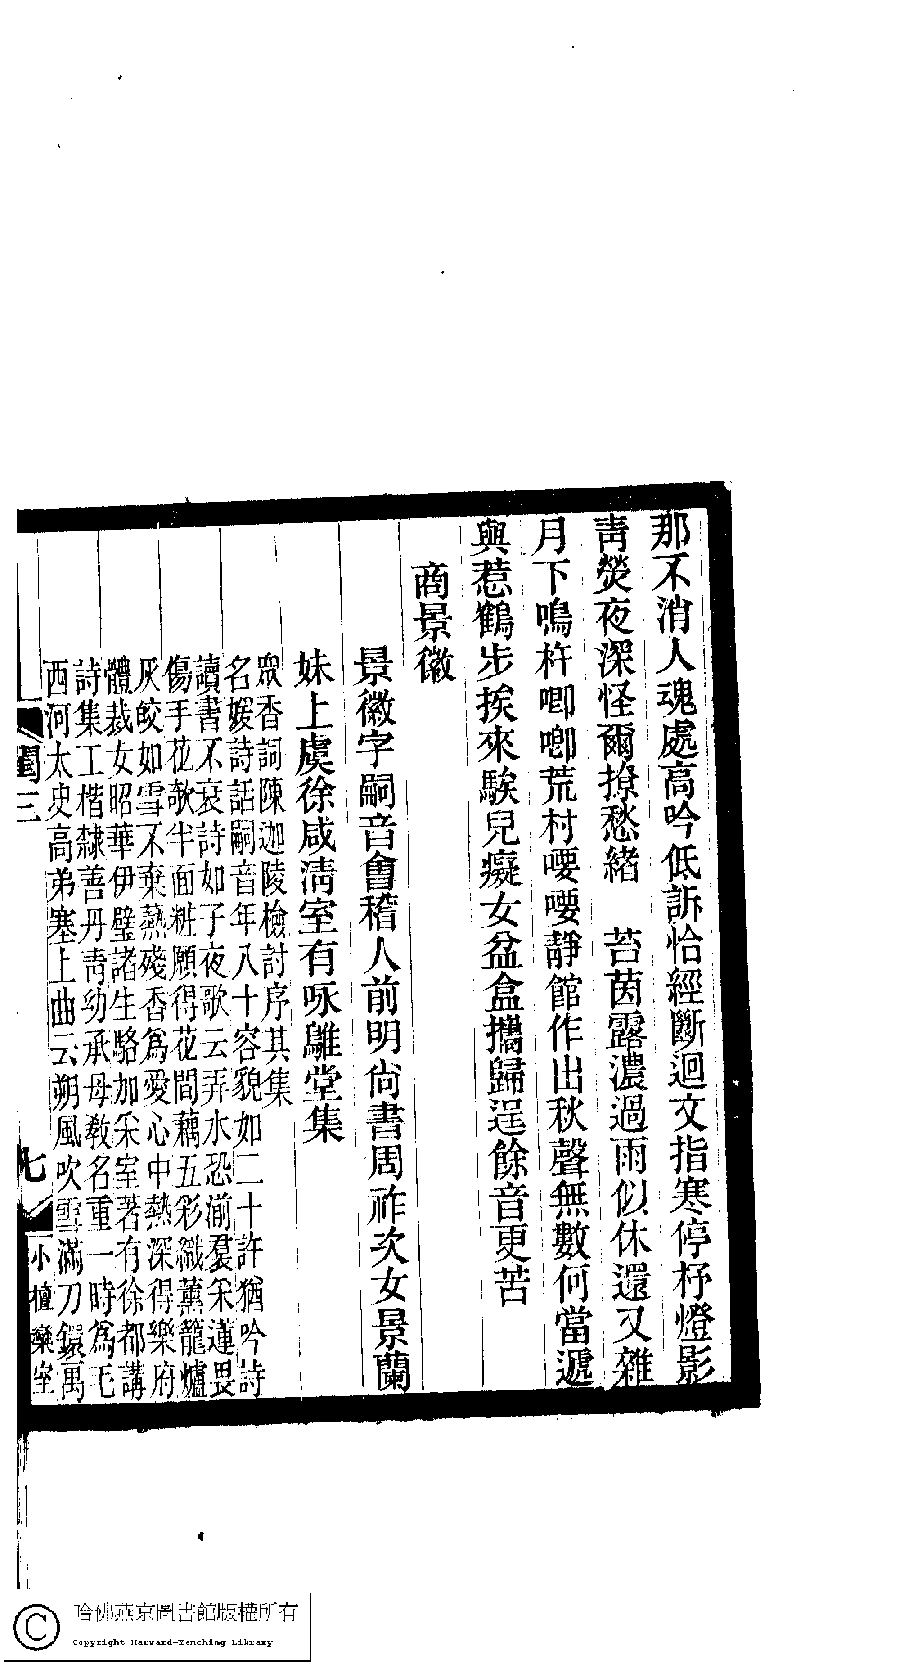 那不消人魂處高吟低訴恰經斷迴文指寒停杼燈影
靑熒夜深怪爾撩愁緒　苔茵露濃過雨似休還又雜
月下鳴杵唧唧荒村喓喓靜館作出秋聲無數何當遞
與惹鶴步挨來騃兒癡女盆盒攜歸逞餘音更苦
商景徽
景徽字嗣音會稽人前明尙書周祚次女景蘭
妹上虞徐咸淸室有咏䳡堂集
眾香詞陳迦陵檢討序其集
名媛詩話嗣音年八十容貌如二十許猶吟詩
讀書不衰詩如子夜歌云弄水恐湔裙采蓮畏
傷手花欹半面粧願得花間藕五彩織薰籠爐
灰皎如雪不棄熱殘香爲愛心中熱深得樂府
體裁女昭華伊璧諸生駱加采室著有徐都講
詩集工楷隸善丹靑幼承母敎名重一時爲毛
西河太史高弟塞上曲云朔風吹雪滿刀鐶萬
閨三
七
小檀欒室
哈佛燕京圖書館版權所有
Copyright Harvard-Yenching Library